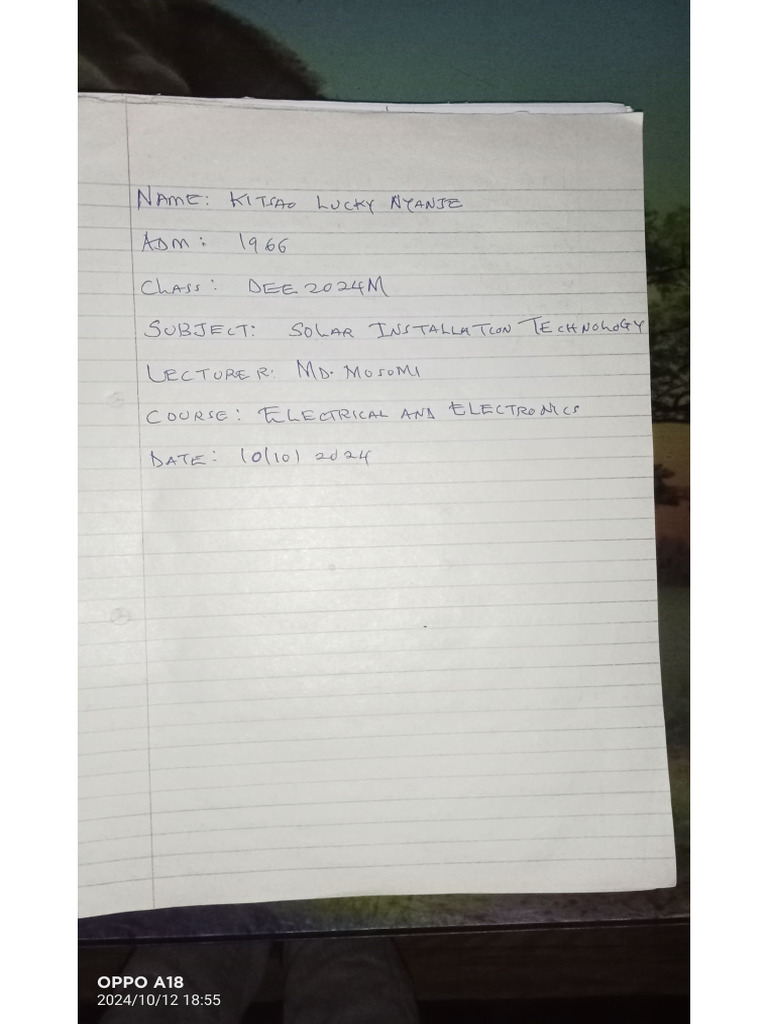 NAME: KITSAO LUCKY NYANJE
ADM: 1966
CLASS: DEE 2024M
SUBJECT: SOLAR INSTALLATION TECHNOLOGY
LECTURER: MD. MOSOMI
COURSE: ELECTRICAL AND ELECTRONICS
DATE: 10/10/2024
OPPO A18
2024/10/12 18:55